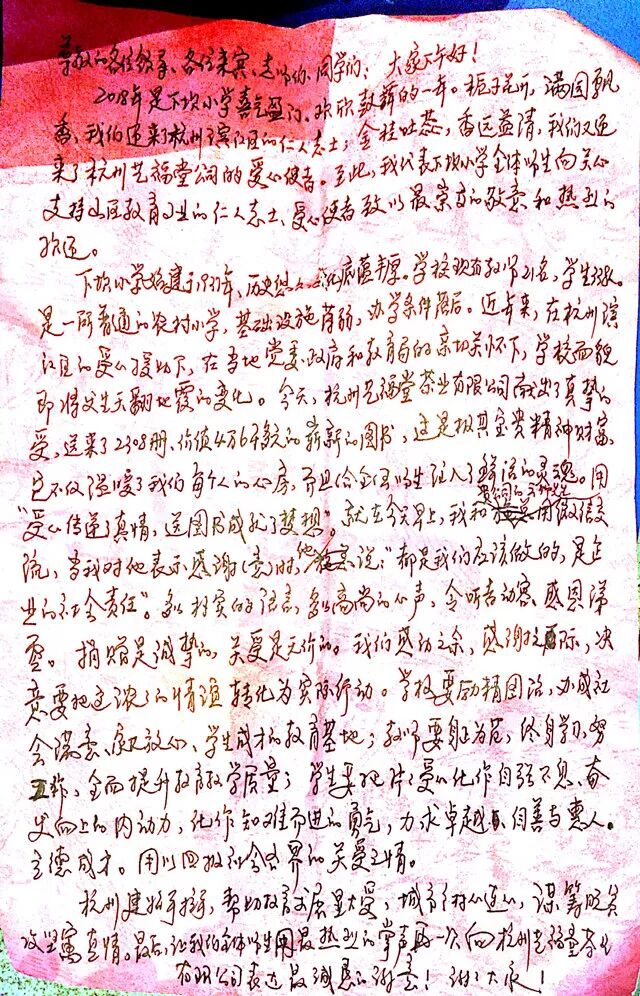 尊敬的各位领导、各位来宾、老师们、同学们：大家下午好！
2018年是下坎小学喜气盈门、欢欣鼓舞的一年。栀子花开，满园飘
香，我们迎来了杭州滨江区的仁人志士；金桂吐蕊，香远益清，我们又迎
来了杭州艺福堂公司的爱心使者。至此，我代表下坎小学全体师生向关心
支持山区教育事业的仁人志士、爱心使者致以最崇高的敬意和热烈的
欢迎。
下坎小学始建于1931年、历史悠久、底蕴丰厚。学校现有教师21名，学生
是一所普通的农村小学，基础设施薄弱，办学条件落后。近年来，在杭州滨
江区的爱心援助下，在当地党委、政府和教育局的亲切关怀下，学校面貌
即将发生天翻地覆的变化。今天，杭州艺福堂茶业有限公司献出了真挚的
爱，送来了2308册、价值4万6千多元的崭新的图书，这是极其宝贵精神财富，
它不仅温暖了我们每个人的心房，而且给全体师生注入了的灵魂。用
“爱心传递了真情，送图书成就了梦想”。就在今天早上，我和公司的用微信交
流，当我对他表示感谢(意)时，他说：“都是我们应该做的，是企
业的社会责任”。多么朴实的语言，多么高尚的心声，令听者动容、感恩涕
零。捐赠是诚挚的，关爱是无价的。我们感动之余，感谢之际，决
意要把这浓浓的情谊转化为实际行动。学校要励精图治，办成社
会满意、家长放心、学生成才的教育基地；教师要身正为范，终身学习，努
工作，全面提升教育教学质量；学生要把片片爱心化作自强不息、奋
发向上的内动力，化作知难而进的勇气，力求卓越、自善与惠人。
立德成才。用以回报社会各界的关爱之情。
杭州建始手拉手，帮助教育大爱；城乡心连心，谋筹脱贫
攻坚寓真情。最后，让我们全体师生用最热烈的掌声再一次向杭州艺福堂茶业
有限公司表达最诚恳的谢意！谢谢大家！